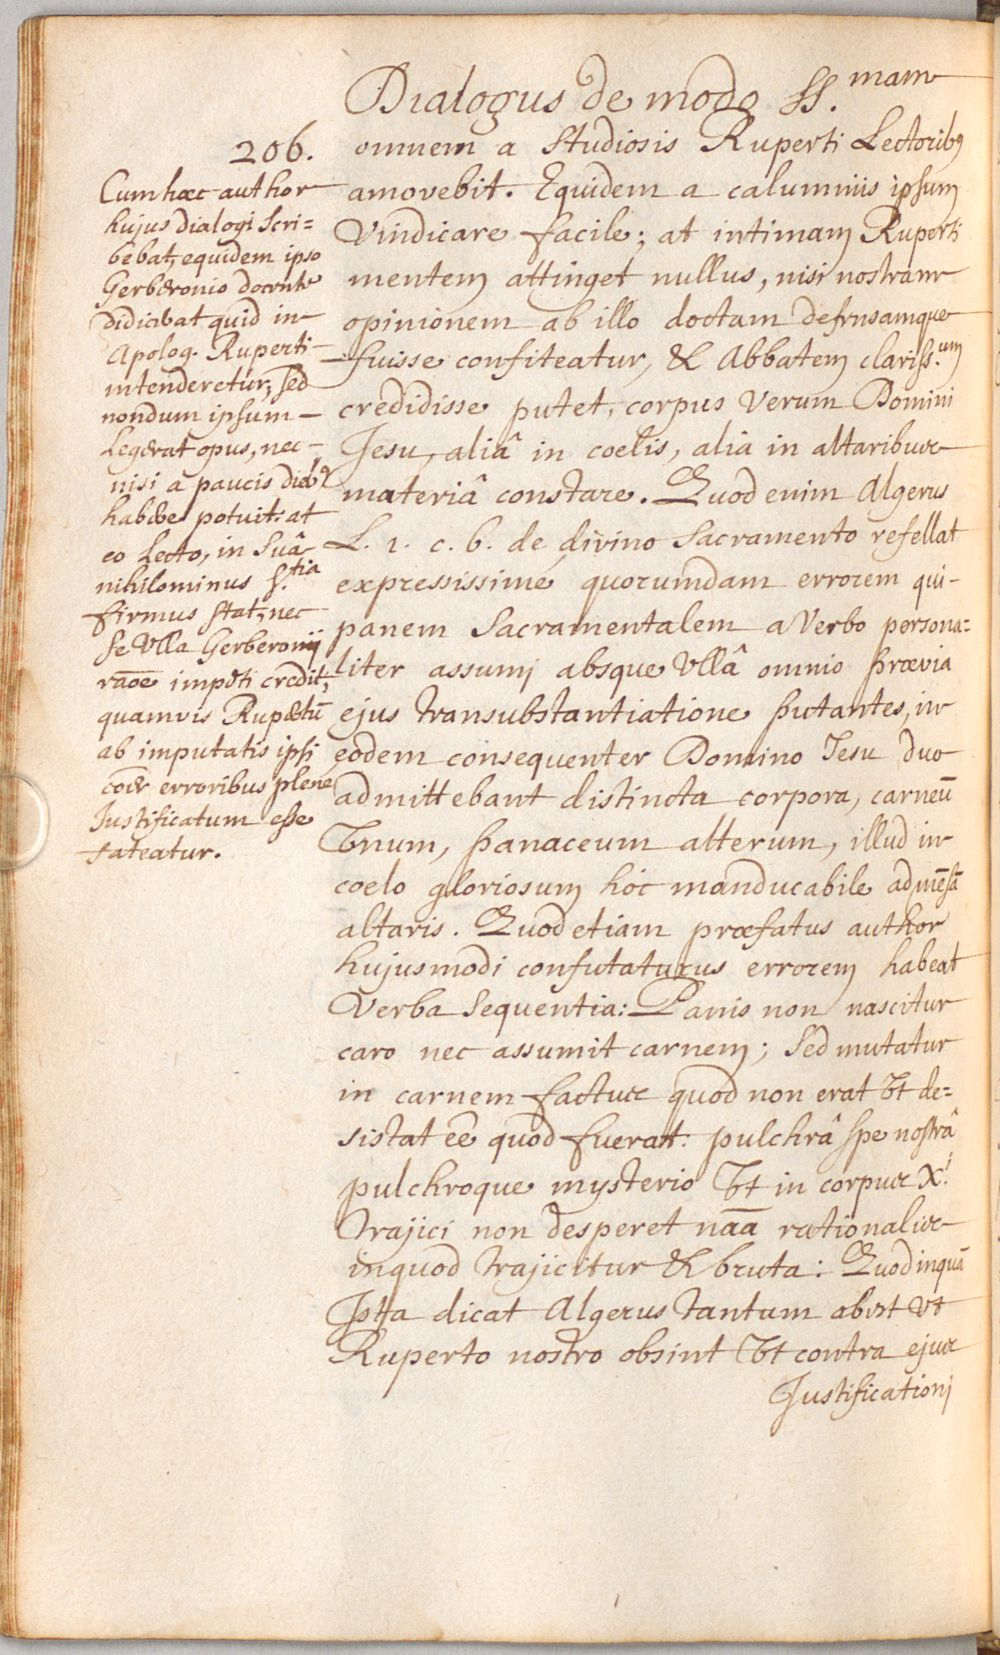 Dialogus de modo SS.mam
206.
Cum hæc author
hujus dialogi scri=
bebat, equidem ipso
Gerberonio docente
didicerat quid in
Apolog. Ruperti
intenderetur, sed
nondum ipsum
Legerat opus, nec
nisi a paucis dieb9
habere potuit, at
eo Lecto, in Suâ
nihilominus S.tia
firmus stat, nec
se Vlla Gerberonij
raõe impeti credit,
quamvis Rupertũ
ab imputatis ipsi
coër erroribus plene
Justificatum esse
fateatur.
omnem a studiosis Ruperti Lectorib9
amovebit. Equidem a calumniis ipsum
Vindicare facile; at intimam Ruperti
mentem attinget nullus, nisi nostram
opinionem ab illo doctam defensamque
fuisse confiteatur, & Abbatem clariss.um
credidisse putet, corpus Verum Domini
Jesu, aliâ in coelis, alia in altaribus
materiâ constare. Quod enim Algerus
L. 1. c. 6. de divino Sacramento refellat
expressissime quorumdam errorem qui
panem Sacramentalem a Verbo persona=
liter assumi absque Vllâ omnio prævia
ejus transubstantiatione putantes, in
eodem consequenter Domino Jesu duo
admittebant distincta corpora, carneũ
Vnum, panaceum alterum, illud in
coelo gloriosum hóc manducabile ad mẽsã
altaris. Quod etiam præfatus author
hujusmodi confutaturus errorem habeat
Verba Sequentia: Panis non nascitur
caro nec assumit carnem; Sed mutatur
in carnem factus quod non erat Vt de=
sistat eẽ quod fuerat: pulchrâ spe nostrâ
pulchroque mysterio Vt in corpus Xi
trajici non desperet naã rationalis
in quod trajicitur & bruta: Quod inquã
Ista dicat Algerus tantum abest Vt
Ruperto nostro obsint Vt contra ejus
Justificationi